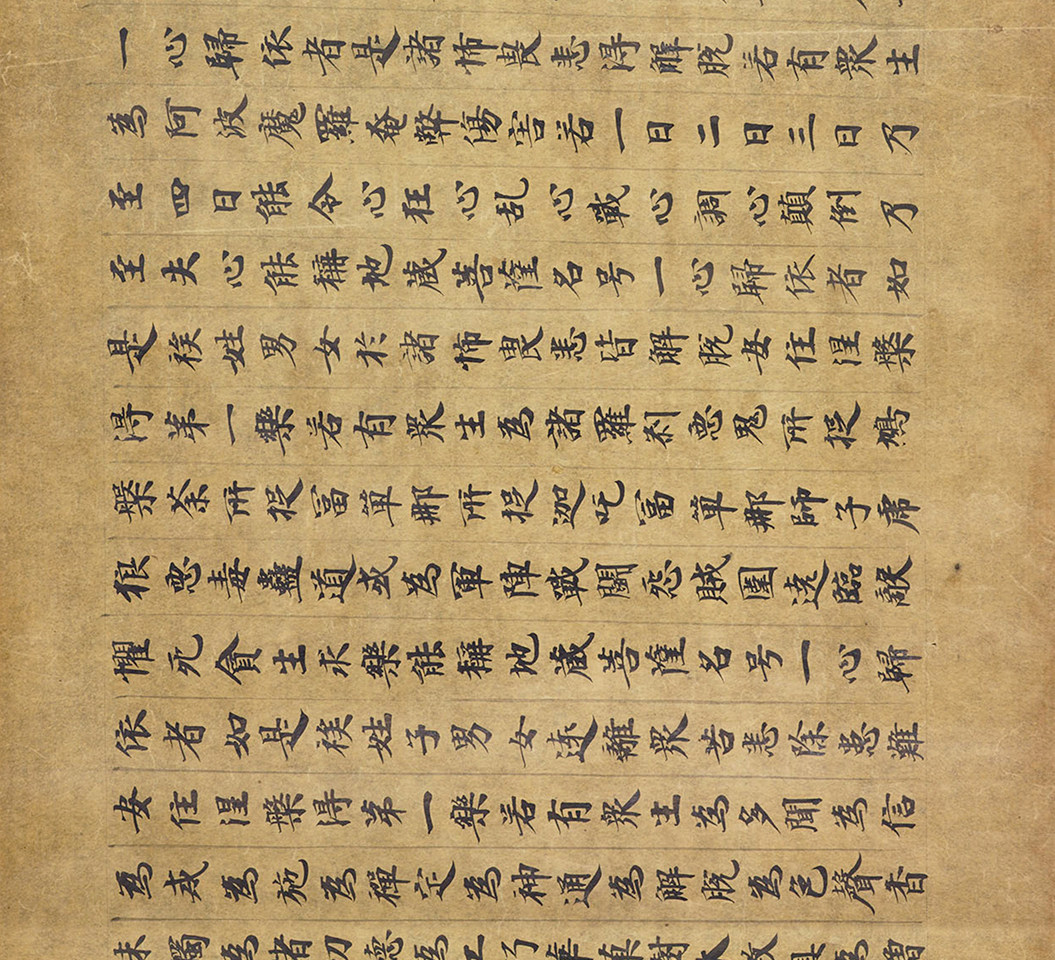 一心歸依者是諸怖畏悉得解脫若有衆生
為阿波魔羅奄弊傷害若一日二日三日乃
至四日能令心狂心乱心戰心調心顛倒乃
至失心能稱地蔵菩薩名号一心歸依者如
是族姓男女於諸怖畏悉皆解脫安住涅槃
得第一樂若有衆生為諸羅刹惡鬼所捉鳩
槃荼所捉富單那所捉迦吒富單那師子虎
狼惡毒蠱道或為軍陣戰鬪怨賊圍遶臨敵
懼死貪生求樂能稱地蔵菩薩名号一心歸
依者如是族姓子男女速離衆苦悉除患難
安住涅槃得第一樂若有衆生為多聞為信
為戒為施為禪定為神通為解脫為色聲香